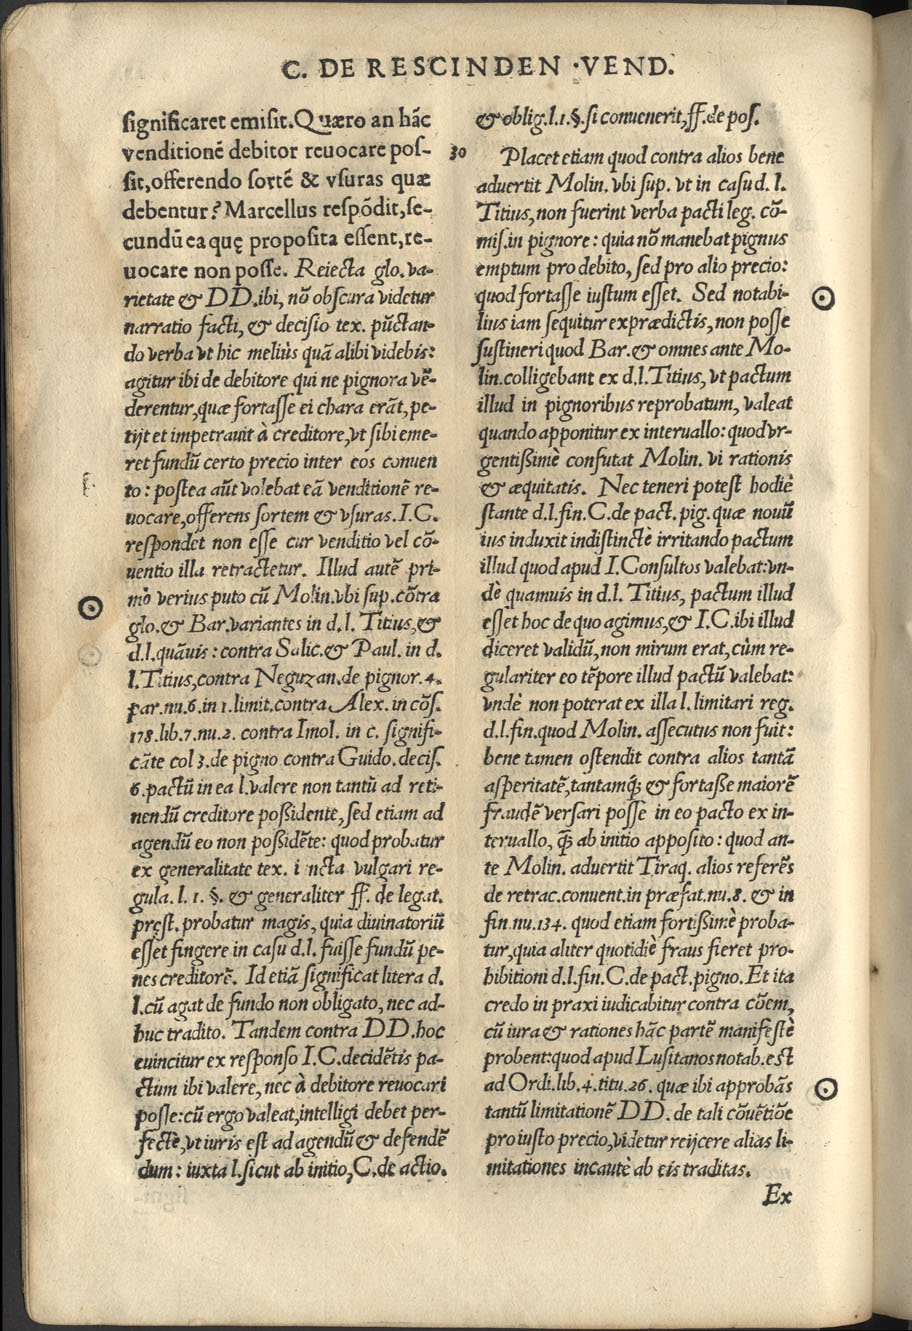 C. DE RESCINDEN ·VEND.
ſignificaret emiſit. Quæro an hãc
venditionẽ debitor reuocare poſ-
ſit, offerendo ſortẽ & vſuras quæ
debentur? Marcellus reſpõdit, ſe-
cundũ ea quę propoſita eſſent, re-
uocare non poſſe. Reiecta glo. va-
rietate & DD. ibi, nõ obſcura videtur
narratio facti, & deciſio tex. pũctan-
do verba vt hic meliùs quã alibi videbis:
agitur ibi de debitore qui ne pignora vẽ-
derentur, quæ fortaſſe ei chara erãt, pe-
tijt et impetrauit à creditore, vt ſibi eme-
ret fundũ certo precio inter eos conuen
to: poſtea aũt volebat eã venditionẽ re-
uocare, offerens ſortem & vſuras. I.C.
reſpondet non eſſe cur venditio vel cõ-
uentio illa retractetur. Illud autẽ pri-
mò verius puto cũ Molin. vbi ſup. cõtra
glo. & Bar. variantes in d. l. Titius, &
d. l. quãuis: contra Salic. & Paul. in d.
l. Titius, contra Neguzan. de pignor. 4.
par. nu. 6. in 1. limit. contra Alex. in cõſ.
178. lib. 7. nu. 2. contra Imol. in c. ſignifi-
cãte col 3. de pigno contra Guido. deciſ.
6. pactũ in ea l. valere non tantũ ad reti-
nendũ creditore poßidente, ſed etiam ad
agendũ eo non poßidẽte: quod probatur
ex generalitate tex. i ncta vulgari re-
gula. l. 1. §. & generaliter ff. de legat.
pręſt. probatur magis, quia diuinatoriũ
eſſet fingere in caſu d. l. fuiſſe fundũ pe-
nes creditorẽ. Id etiã ſignificat litera d.
l. cũ agat de fundo non obligato, nec ad-
huc tradito. Tandem contra DD. hoc
euincitur ex reſponſo I.C. decidẽtis pa-
ctum ibi valere, nec à debitore reuocari
poſſe: cũ ergo valeat, intelligi debet per-
fectè, vt iuris eſt ad agendũ & defendẽ
dum: iuxta l. ſicut ab initio, C. de actio.
& oblig. l. 1. §. ſi conuenerit, ff. de poſ.
30 Placet etiam quod contra alios bene
aduertit Molin. vbi ſup. vt in caſu d. l.
Titius, non fuerint verba pacti leg. cõ-
miſ. in pignore: quia nõ manebat pignus
emptum pro debito, ſed pro alio precio:
quod fortaſſe iuſtum eſſet. Sed notabi-
lius iam ſequitur ex prædictis, non poſſe
ſuſtineri quod Bar. & omnes ante Mo-
lin. colligebant ex d. l. Titius, vt pactum
illud in pignoribus reprobatum, valeat
quando apponitur ex interuallo: quod vr-
gentißimè confutat Molin. vi rationis
& æquitatis. Nec teneri poteſt hodiè
ſtante d. l. fin. C. de pact. pig. quæ nouũ
ius induxit indiſtinctè irritando pactum
illud quod apud I.Conſultos valebat: vn-
dè quamuis in d. l. Titius, pactum illud
eſſet hoc de quo agimus, & I.C. ibi illud
diceret validũ, non mirum erat, cùm re-
gulariter eo tẽpore illud pactũ valebat:
vndè non poterat ex illa l. limitari reg.
d. l. fin. quod Molin. aſſecutus non fuit:
bene tamen oſtendit contra alios tantã
aſperitatẽ, tantamq́; & fortaße maiorẽ
fraudẽ verſari poſſe in eo pacto ex in-
teruallo, q̃; ab initio appoſito: quod an-
te Molin. aduertit Tiraq. alios referẽs
de retrac. conuent. in præfat. nu. 8. & in
fin. nu. 134. quod etiam fortißimè proba-
tur, quia aliter quotidiè fraus fieret pro-
hibitioni d. l. fin. C. de pact. pigno. Et ita
credo in praxi iudicabitur contra cõem,
cũ iura & rationes hãc partẽ manifeſtè
probent: quod apud Luſitanos notab. eſt
ad Ordi. lib. 4. titu. 26. quæ ibi approbãs
tantũ limitationẽ DD. de tali cõuẽtiõe
pro iuſto precio, videtur reijcere alias li-
mitationes incautè ab eis traditas.
Ex